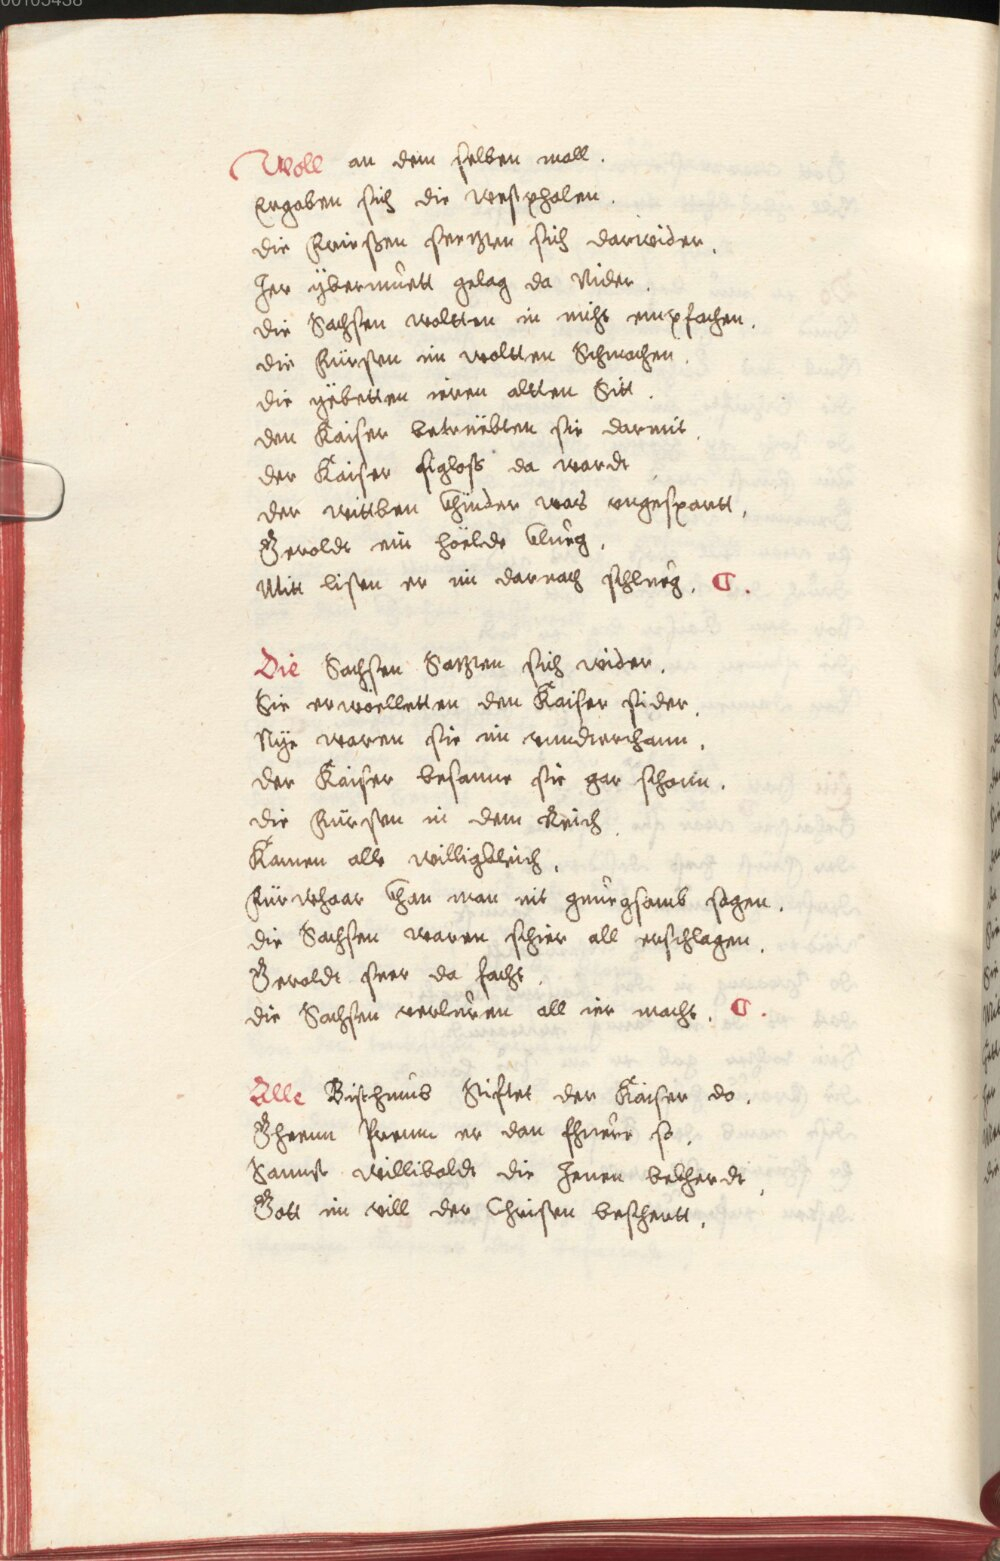 00105438
Woll an dem selben mall.
Ergaben sich die westphalen.
die Frießen seczten sich darwider.
Jer ÿbermůett gelag da Nider.
die Sachsen woltten in nicht empfachen.
die Fürsten im woltten Schmachen.
die yebetten ieren altten Sitt.
den Kaiser betruebten sie darmit.
der Kaiser sigloß da wardt
der wittben Khinder was ungespartt.
Geroldt ein hoelde Khlueg.
Mitt listen er im darnach schlueg.
Die Sachsen Saczten sich wider.
Sie erwoelletten den Kaiser sider.
Nye waren sie im vnndterthann.
der Kaiser besannt sie gar schonn.
die Fürsten in dem Reich
Kamen alle willigkleich.
Fürwhaar Khan man nit genuegsamb sagen.
die Sachsen waren schier all erschlagen.
Geroldt seer da facht.
die Sachsen verluren all ier macht.
Alle Bisthumb Stiftet der Kaiser do.
Ghenn er dan so.
Sannct Willibaldt die Jenen bekherdt.
Gott im will der Christen beschertt.